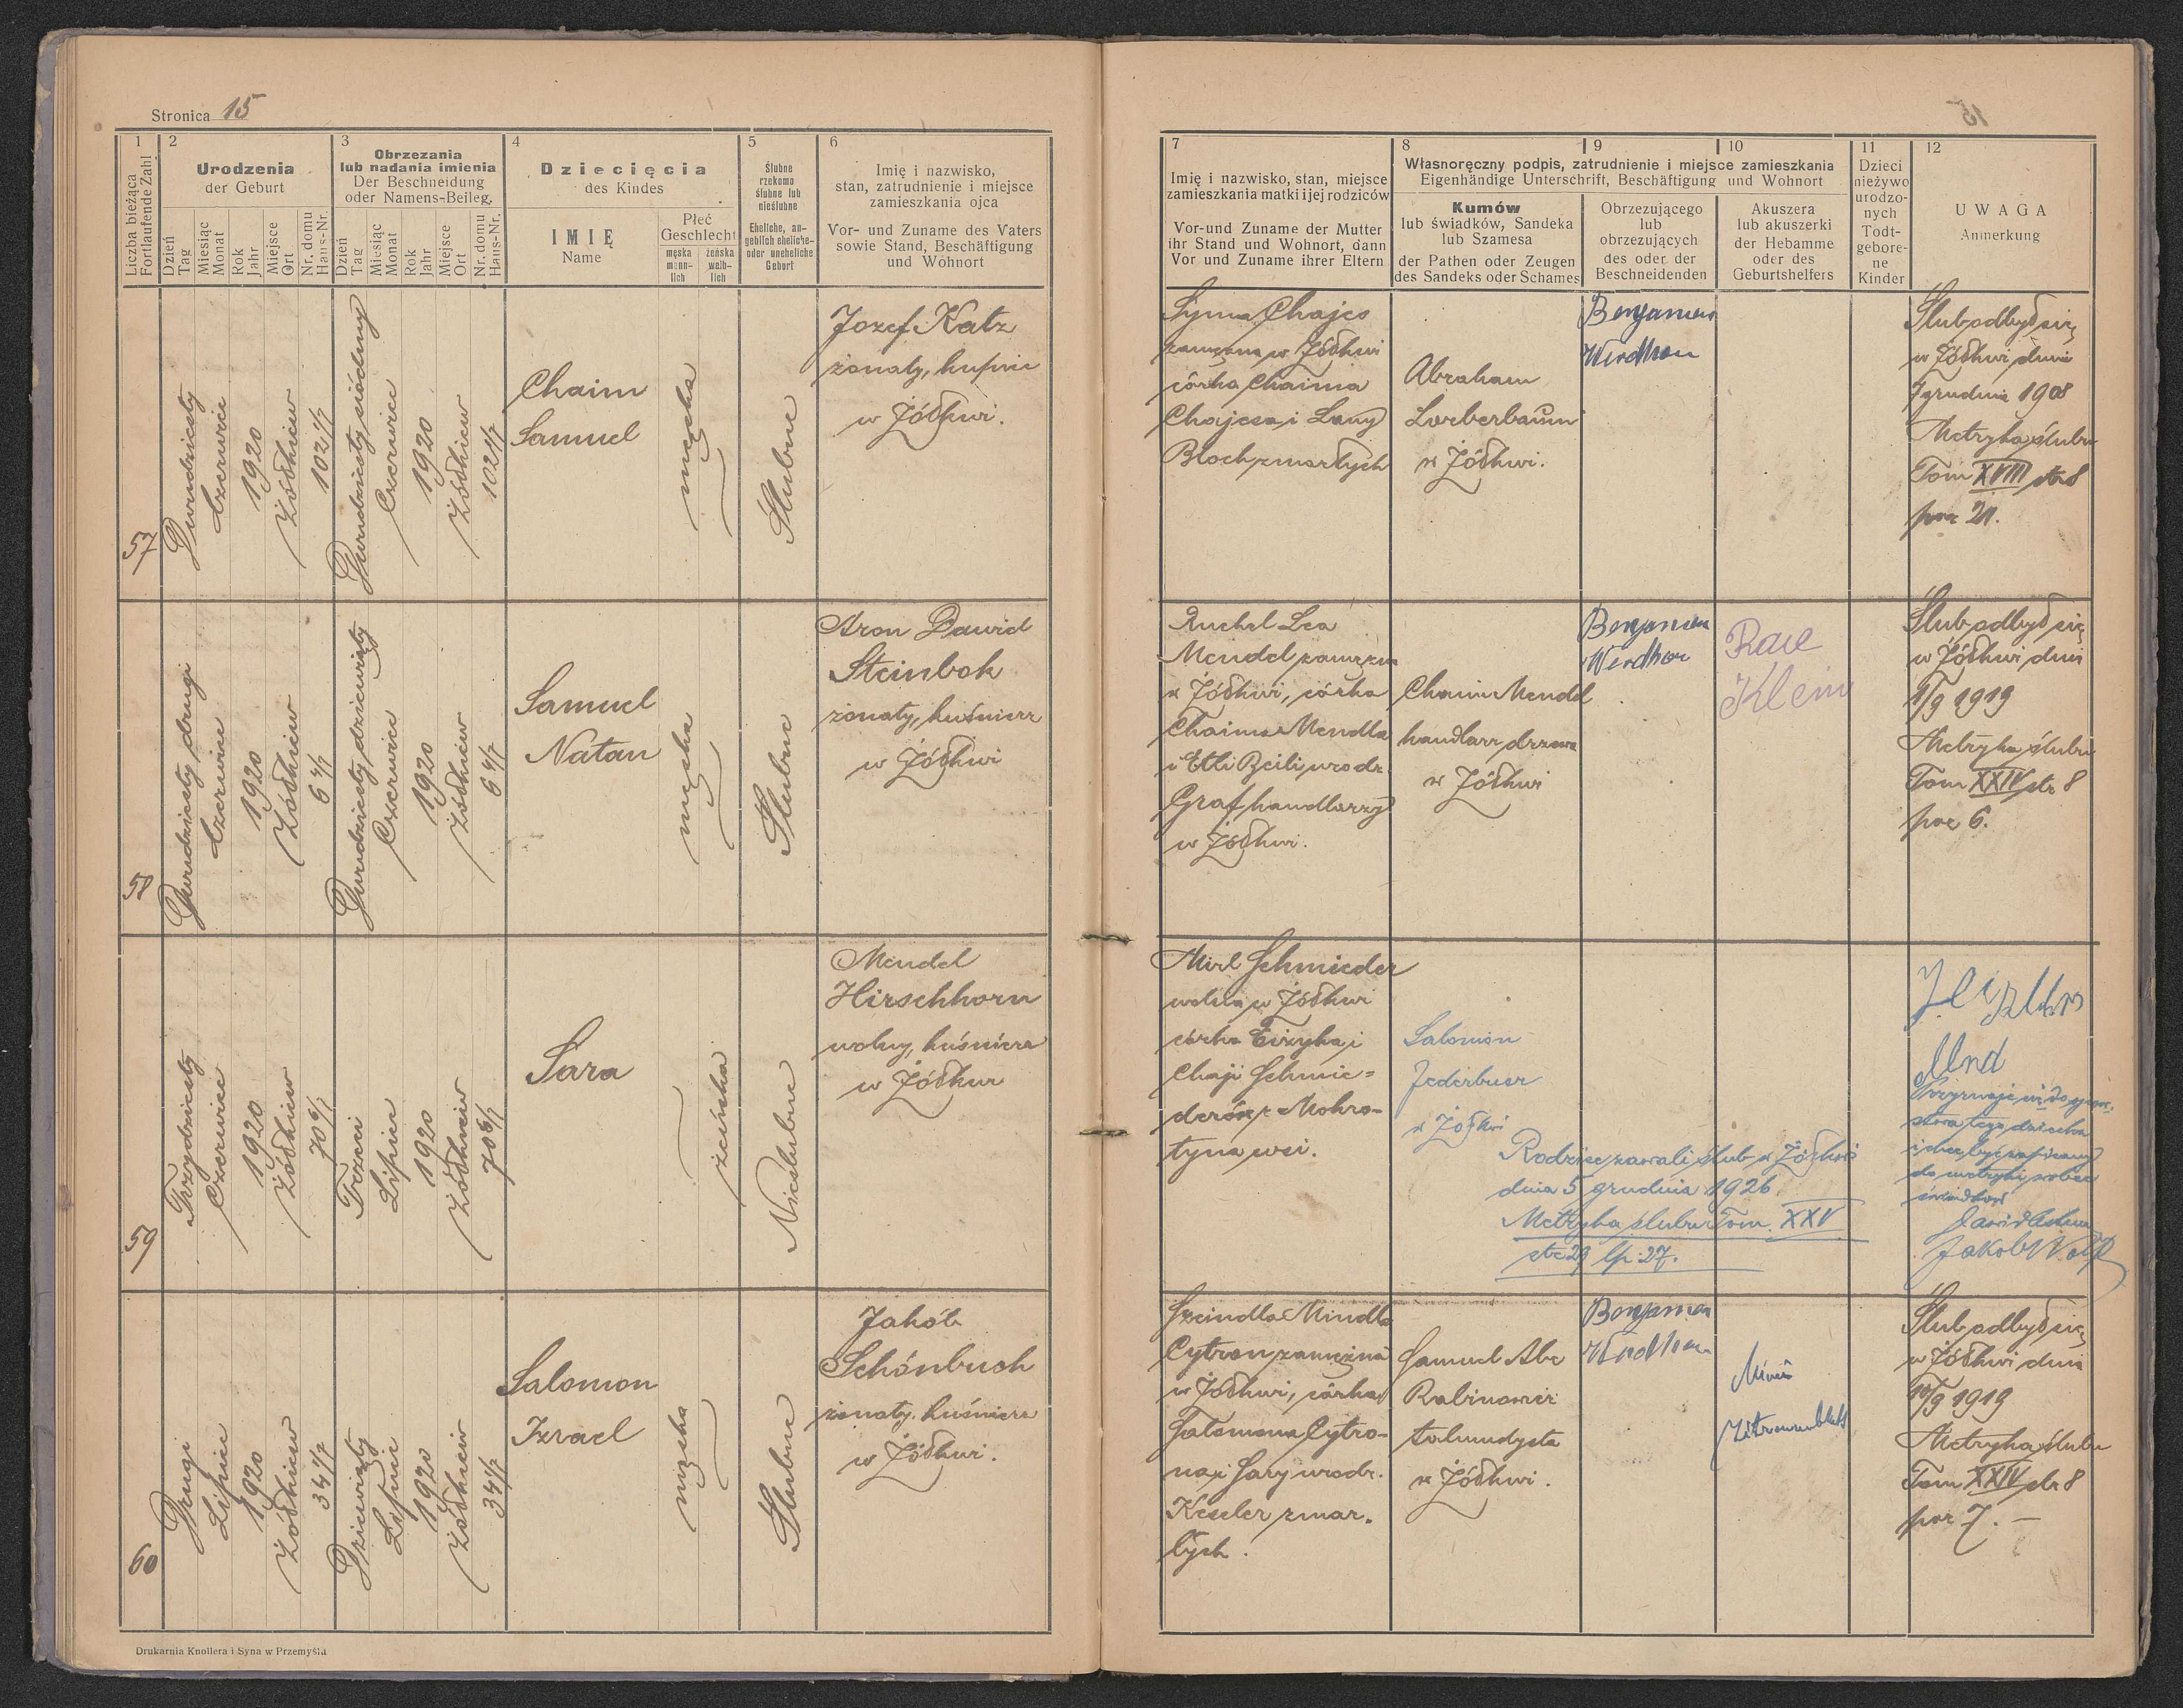 Stronica 15
1
Liczba bieżąca
Fortlaufende Zahl
2
Urodzenia
der Geburt
Dzień
Tag
Miesiąc
Monat
Rok
Jahr
Miejsce
Ort
Nr. domu
Haus-Nr.
3
Obrzezania
lub nadania imienia
Der Beschneidung
oder Namens-Beileg.
Dzień
Tag
Miesiąc
Monat
Rok
Jahr
Miejsce
Ort
Nr. domu
Haus-Nr.
4
Dziecięcia
des Kindes
IMIĘ
Name
Płeć
Geschlecht
męska
männ-
lich
żeńska
weib-
lich
5
Ślubne
rzekomo
ślubne lub
nieślubne
Eheliche, an-
geblich eheliche-
oder uneheliche
Geburt
6
Imię i nazwisko,
stan, zatrudnienie i miejsce
zamieszkania ojca
Vor- und Zuname des Vaters
sowie Stand, Beschäftigung
und Wohnort
7
Imię i nazwisko, stan, miejsce
zamieszkania matki i jej rodziców
Vor-und Zuname der Mutter
ihr Stand und Wohnort, dann
Vor und Zuname ihrer Eltern
8
9
10
Własnoręczny podpis, zatrudnienie i miejsce zamieszkania
Eigenhändige Unterschrift, Beschäftigung und Wohnort
Kumów
lub świadków, Sandeka
lub Szamesa
der Pathen oder Zeugen
des Sandeks oder Schames
Obrzezującego
lub
obrzezujących
des oder der
Beschneidenden
Akuszera
lub akuszerki
der Hebamme
oder des
Geburtshelfers
11
Dzieci
nieżywo
urodzo-
nych
Todt-
gebore-
ne
Kinder
12
UWAGA
Anmerkung
57
Dwudziesty
Czerwiec
1920
Żółkiew
102 1/7
Dwudziesty siódmy
Czerwiec
1920
Żółkiew
102 1/7
Chaim
Samuel
męska
Ślubne
Jozef Katz
żonaty, kupiec
w Żółkwi.
Syma Chajes
zamężna w Żółkwi
córka Chaima
Chajesa i Lany
Bloch zmarłych
Abraham
Lorberbaum
w Żółkwi.
Benjamin
Ślub odbył się
w Żółkwi dnia
7 grudnia 1908
Metryka ślubu
Tom XVIII str 8
poz 21.
58
Dwudziesty drugi
Czerwiec
1920
Żółkiew
6 4/7
Dwudziesty dziewiąty
Czerwiec
1920
Żółkiew
6 4/7
Samuel
Natan
męska
Ślubne
Aron Dawid
Steinbok
żonaty, kuśnierz
w Żółkwi
Ruchel Lea
Mendel zamężna
w Żółkwi, córka
Chaima Mendla
i Etli Beili urodz.
Graf handlarzy
w Żółkwi.
Chaim Mendel
handlarz drzewa
w Żółkwi
Benjamin
Klein
Ślub odbył się
w Żółkwi dnia
1/9 1919
Metryka ślubu
Tom XXIV str 8
poz 6.
59
Trzydziesty
Czerwiec
1920
Żółkiew
70 6/7
Trzeci
Lipiec
1920
Żółkiew
70 6/7
Sara
żeńska
Nieślubne
Mendel
Hirschhorn
wolny, kuśnierz
w Żółkwi
Mirl Schmieder
wolna w Żółkwi
córka Eizyka i
Chaji Schmie-
derów z Mokro-
tyna wsi.
Salomon
Federbusr
w Żółkwi
Rodzice zawarli ślub w Żółkwi
dnia 5 grudnia 1926
Metryka ślubu Tom. XXV
str 29 lp. 27.
Przyznaję się do ojco-
stwa tego dziecka
i chcę być zapisany
do metryki wobec
świadków
Jakob Wolf
60
Drugi
Lipiec
1920
Żółkiew
34 1/7
Dziewiąty
Lipiec
1920
Żółkiew
34 1/7
Salomon
Izrael
męska
Ślubne
Jakób
Schönbuch
żonaty, kuśnierz
w Żółkwi.
Szeindla Mindla
Cytron zamężna
w Żółkwi, córka
Salomona Cytro-
na i Sary urodz.
Kesler zmar-
łych.
Samuel Abe
Rabinowicz
talmudysta
w Żółkwi.
Benjamin
Ślub odbył się
w Żółkwi dnia
10/9 1919
Metryka ślubu
Tom XXIV str 8
poz 7. —
Drukarnia Knollera i Syna w Przemyślu